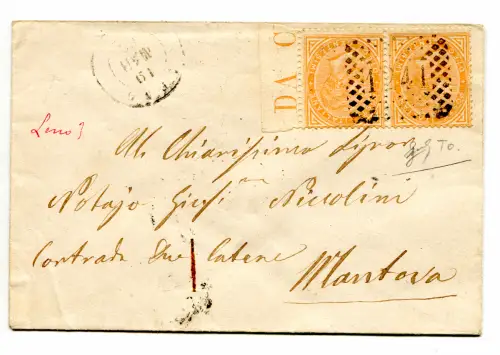 DA C
Leno
Al Chiarissimo Signor
Notajo Giusi Niccolini
Contrada Due Catene
Mantova